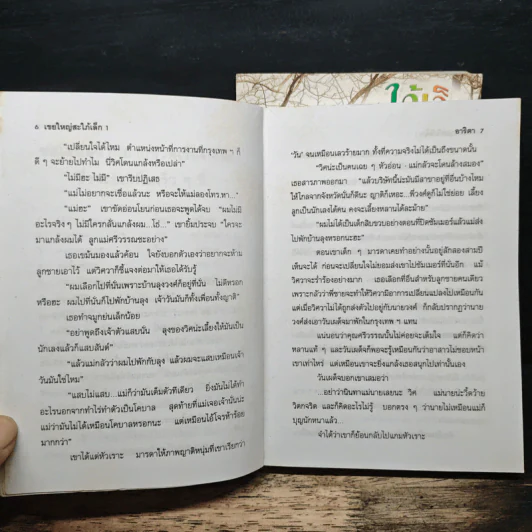 ใกล้
6 เขยใหญ่สะใภ้เล็ก 1
"เปลี่ยนใจได้ไหม ตำแหน่งหน้าที่การงานที่กรุงเทพ ฯ ก็
ดี ๆ จะย้ายไปทำไม นี่วิคโดนแกล้งหรือเปล่า"
"ไม่มีฮะ ไม่มี" เขารีบปฏิเสธ
"แม่ไม่อยากจะเชื่อแล้วนะ หรือจะให้แม่ลองโทร.หา..."
"แม่ฮะ" เขาขัดอ่อนโยนก่อนเธอจะพูดได้จบ "ผมไม่มี
อะไรจริงๆ ไม่มีใครกลั่นแกล้งผม...โธ่..." เขายิ้มประจบ "ใครจะ
มาแกล้งผมได้ ลูกแม่ศรีวรรณซะอย่าง"
เธอเขม้นมองแล้วค้อน ใจยังบอกตัวเองว่าอยากจะห้าม
ลูกชายเอาไว้ แต่วิควาก็ชี้แจงต่อมาให้เธอได้รับรู้
"ผมเลือกไปที่นั่นเพราะบ้านลุงวงศ์ก็อยู่ที่นั่น ไม่ดีหรอก
หรือฮะ ผมไปที่นั่นก็ไปพักบ้านลุง เจ้าวันมันก็ทั้งเพื่อนทั้งญาติ"
เธอทำจมูกย่นเล็กน้อย
"อย่าพูดถึงเจ้าตัวแสบนั่น ลุงของวิคน่ะเลี้ยงให้มันเป็น
นักเลงแล้วก็แสบสันต์"
"แล้วแม่กลัวว่าผมไปพักกับลุง แล้วผมจะแสบเหมือนเจ้า
วันมันใช่ไหม"
"แสบไม่แสบ...แม่ก็ว่ามันเต็มตัวทีเดียว ยิ่งมันไม่ได้ทำ
อะไรนอกจากทำไร่ทำตัวเป็นโคบาล สุดท้ายที่แม่เจอเจ้านั่นน่ะ
แม่ว่ามันไม่ได้เหมือนโคบาลหรอกนะ แต่เหมือนไอ้โจรห้าร้อย
มากกว่า"
เขาได้แต่หัวเราะ มารดาให้ภาพญาติหนุ่มที่เขาเรียกว่า
อาริตา 7
'วัน' จนเหมือนเลวร้ายมาก ทั้งที่ความจริงไม่ได้เป็นถึงขนาดนั้น
"วิคน่ะเป็นคนเฉย ๆ หัวอ่อน แม่กลัวจะโดนล้างสมอง"
เธอสารภาพออกมา "แล้วบริษัทนี้น่ะมันมีสาขาอยู่ที่อื่นบ้างไหม
ให้ไกลจากจังหวัดนั่นก็ดีนะ ญาติก็เหอะ...พี่วงศ์ดูก็ไม่ใช่ย่อย เลี้ยง
ลูกเป็นนักเลงได้คน คงจะเลี้ยงหลานได้ละม้าย"
"ผมไม่ได้เป็นเด็กสิบขวบอย่างตอนที่ปิดซัมเมอร์แล้วแม่ส่ง
ไปพักบ้านลุงหรอกนะฮะ"
ตอนเขาเด็ก ๆ มารดาเคยทำอย่างนั้นอยู่สักสองสามปี
เห็นจะได้ ก่อนจะเปลี่ยนใจไม่ยอมส่งเขาไปซัมเมอร์ที่นั่นอีก แม้
วิควาจะร่ำร้องอย่างมาก เธอเลือกที่อื่นสำหรับลูกชายคนเดียว
เพราะกลัวว่าพี่ชายจะทำให้วิความีอาการเปลี่ยนแปลงไปเหมือนกัน
แต่เมื่อวิควาไม่ได้ถูกส่งตัวไปอยู่กับนายวงศ์ ก็กลับปรากฏว่านาย
วงศ์ส่งเอาวันเผด็จมาพักในกรุงเทพ ฯ แทน
แน่นอนว่าคุณศรีวรรณนั้นไม่ค่อยจะเต็มใจ แต่ก็คิดว่า
หลานแท้ ๆ และวันเผด็จก็พอจะรู้เหมือนกันว่าอาสาวไม่ชอบหน้า
เขาเท่าไหร่ แต่เหมือนเขาจะยิ่งแกล้งเธอสนุกไปเท่านั้นเอง
วันเผด็จบอกเขาเสมอว่า
...อย่าว่านินทาแม่นายเลยนะ วิค แม่นายน่ะวี้ดว้าย
วิตกจริต และก็คิดอะไรไม่รู้ บอกตรง ๆ ว่านายไม่เหมือนแม่ก็
บุญนักหนาแล้ว...
จำได้ว่าเขาก็ย้อนกลับไปแกมหัวเราะ